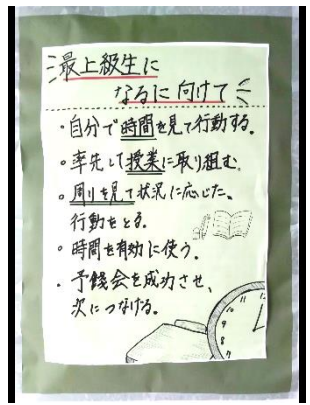 最上級生に
なるに向けて
・自分で時間を見て行動する。
・率先して授業に取り組む。
・周りを見て状況に応じた、
行動をとる。
・時間を有効に使う。
・予餞会を成功させ、
次につなげる。
11
12
10
9
8
7